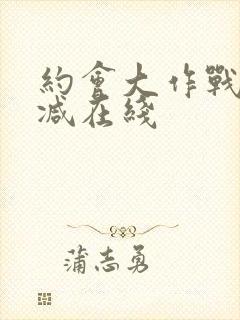 約會大作戰
减在綫
蒲志勇